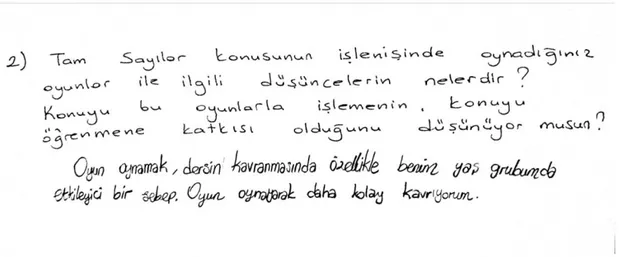 2) Tam Sayılar konusunun işlenişinde oynadığınız
oyunlar ile ilgili düşüncelerin nelerdir?
Konuyu bu oyunlarla işlemenin, konuyu
öğrenmene katkısı olduğunu düşünüyor musun?
Oyun oynamak, dersin kavranmasında özellikle benim yaş grubumda
etkileyici bir sebep. Oyun oynayarak daha kolay kavrıyorum.